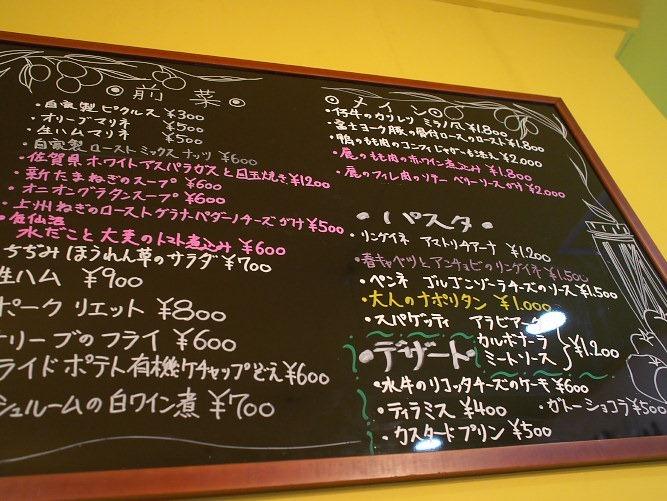 前菜
・自家製ピクルス ¥300
・オリーブマリネ ¥500
・生ハムマリネ ¥500
・自家製ローストミックスナッツ ¥600
・佐賀県ホワイトアスパラガスと目玉焼き¥1200
・新たまねぎのスープ ¥600
・オニオングラタンスープ ¥600
・上州ねぎのローストグラナ・パダーノチーズがけ¥500
・気仙沼
水だこと大麦のトマト煮込み ¥600
ちぢみほうれん草のサラダ ¥700
生ハム ¥900
ポーク リエット ¥800
オリーブのフライ ¥600
ライドポテト有機ケチャップどえ¥600
シュルームの白ワイン煮 ¥700
メイン
・仔牛のカツレツ ミラノ風 ¥1.800
・富士ヨーク豚の骨付ロースのロースト¥1.800
・鴨のもも肉のコンフィじゃがーも添え¥2.000
・鹿のもも肉の赤ワイン煮込み ¥1.800
・鹿のフィレ肉のソテー ベリーソースがけ ¥2.000
・パスタ・
・リングイネ アマトリチアーナ ¥1.200
・春キャベツとアンチョビのリングイネ ¥1.500
・ペンネ ゴルゴンゾーラチーズのソース¥1.500
・大人のナポリタン ¥1.000
・スパゲッティ アラビアータ
カルボナーラ
ミートソース ¥1.200
・デザート・
・水牛のリコッタチーズのケーキ ¥600
・ティラミス ¥400
・ガトーショコラ ¥500
・カスタードプリン ¥500